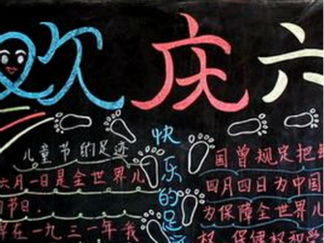 欢庆六
儿童节的足迹
六月一日是全世界儿
的节日。
早在一九三一年我
快乐的足迹
国曾规定把
四月四日为中国
为保障全世界